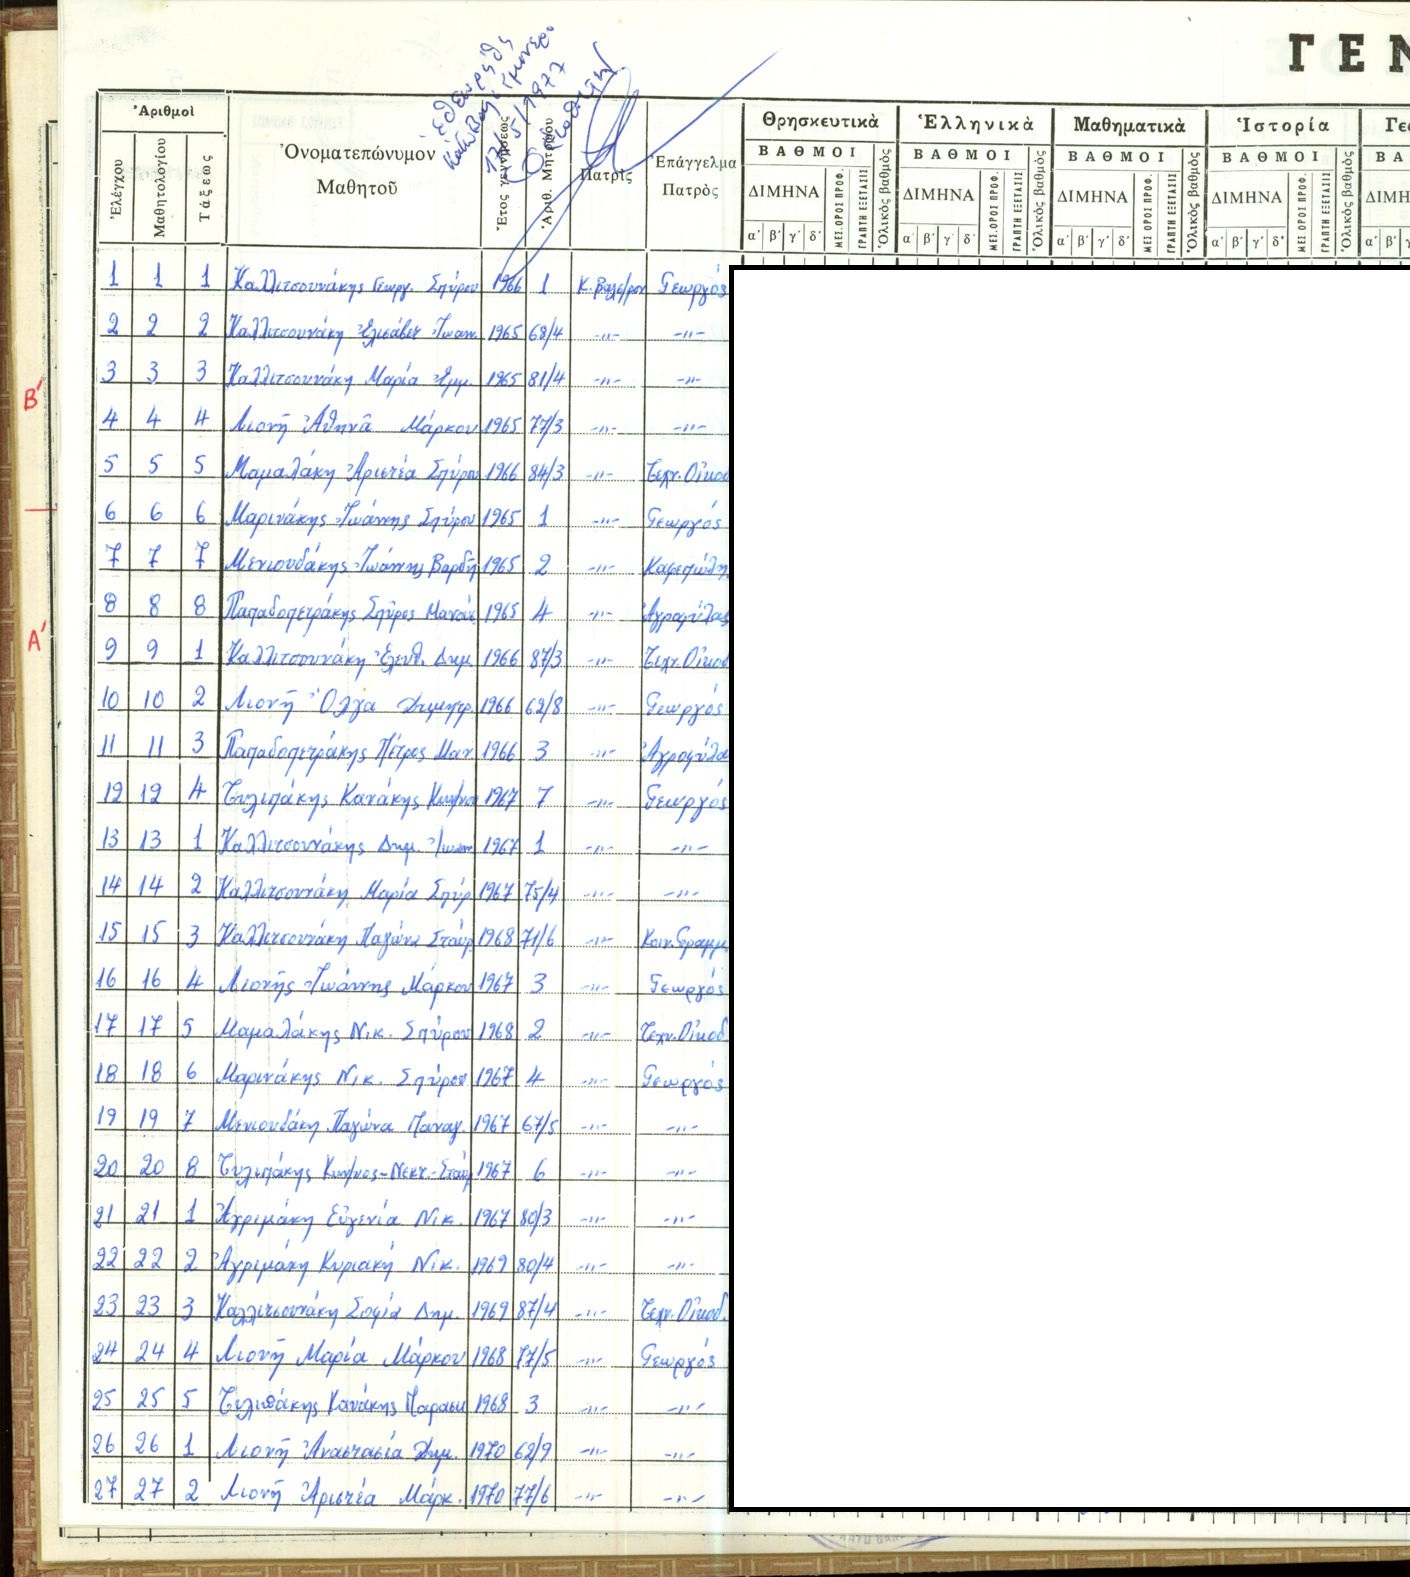 ΓΕΝ
Ἐθεωρήθη
13/5/1977
Ἀριθμοὶ
Ἐλέγχου Μαθητολογίου Τάξεως
Ὀνοματεπώνυμον Μαθητοῦ
Ἔτος γεννήσεως
Ἀριθ. Μητρώου
Πατρὶς
Ἐπάγγελμα Πατρὸς
Θρησκευτικὰ Ἑλληνικὰ Μαθηματικὰ Ἱστορία Γε
ΒΑΘΜΟΙ ΒΑΘΜΟΙ ΒΑΘΜΟΙ ΒΑΘΜΟΙ ΒΑ
ΔΙΜΗΝΑ ΜΕΣ.ΟΡΟΣ ΠΡΟΦ. ΓΡΑΠΤΗ ΕΞΕΤΑΣΙΣ Ὁλικὸς βαθμὸς ΔΙΜΗΝΑ ΜΕΣ.ΟΡΟΣ ΠΡΟΦ. ΓΡΑΠΤΗ ΕΞΕΤΑΣΙΣ Ὁλικὸς βαθμὸς ΔΙΜΗΝΑ ΜΕΣ ΟΡΟΣ ΠΡΟΦ. ΓΡΑΠΤΗ ΕΞΕΤΑΣΙΣ Ὁλικὸς βαθμὸς ΔΙΜΗΝΑ ΜΕΣ ΟΡΟΣ ΠΡΟΦ. ΓΡΑΠΤΗ ΕΞΕΤΑΣΙΣ Ὁλικὸς βαθμὸς ΔΙΜΗΝ
α΄ β΄ γ΄ δ΄ α΄ β΄ γ΄ δ΄ α΄ β΄ γ΄ δ΄ α΄ β΄ γ΄ δ΄ α΄ β΄ γ
1 1 1 Καλλιτσουνάκης Γεωργ. Σπύρου 1966 1 Γεωργός
2 2 2 Καλλιτσουνάκη Ἐλισάβετ Ἰωαν. 1965 68/4 -"- -"-
3 3 3 Καλλιτσουνάκη Μαρία Ἐμμ. 1965 81/4 -"- -"-
Β΄
4 4 4 Λιονῆ Ἀθηνᾶ Μάρκου 1965 77/3 -"- -"-
5 5 5 Μαμαλάκη Ἀριστέα Σπύρου 1966 84/3 -"- Τεχν. Οἰκοδ
6 6 6 Μαρινάκης Ἰωάννης Σπύρου 1965 1 -"- Γεωργός
7 7 7 Μενιουδάκης Ἰωάννης Βαρδῆ 1965 2 -"- Καφεπώλης
8 8 8 Παπαδοπετράκης Σπῦρος Μανού 1965 4 -"- Ἀγροφύλας
Α΄
9 9 1 Καλλιτσουνάκη Ἐλευθ. Δημ. 1966 87/3 -"- Τεχν. Οἰκοδ
10 10 2 Λιονῆ Ὄλγα Δημητρ. 1966 62/8 -"- Γεωργός
11 11 3 Παπαδοπετράκης Πέτρος Μαν. 1966 3 -"- Ἀγροφύλα
12 12 4 Τυλιπάκης Κανάκης Κων/νου 1967 7 -"- Γεωργός
13 13 1 Καλλιτσουνάκης Δημ. Ἰωαν 1967 1 -"- -"-
14 14 2 Καλλιτσουνάκη Μαρία Σπύρ. 1967 75/4 -"- -"-
15 15 3 Καλλιτσουνάκη Παγώνα Σταύρ. 1968 71/6 -"- Κοιν. Γραμμ.
16 16 4 Λιονῆς Ἰωάννης Μάρκου 1967 3 -"- Γεωργός
17 17 5 Μαμαλάκης Νικ. Σπύρου 1968 2 -"- Τεχν. Οἰκοδ.
18 18 6 Μαρινάκης Νικ. Σπύρου 1967 4 -"- Γεωργός
19 19 7 Μενιουδάκη Παγώνα Παναγ. 1967 67/5 -"- -"-
20 20 8 Τυλιπάκης Κων/νος-Νεκτ. Σταύρ 1967 6 -"- -"-
21 21 1 Ἀγριμάκη Εὐγενία Νικ. 1967 80/3 -"- -"-
22 22 2 Ἀγριμάκη Κυριακή Νικ. 1969 80/4 -"- -"-
23 23 3 Καλλιτσουνάκη Σοφία Δημ. 1969 87/4 -"- Τεχν. Οἰκοδ.
24 24 4 Λιονῆ Μαρία Μάρκου 1968 77/5 -"- Γεωργός
25 25 5 Τυλιπάκης Κανάκης Παρασκ 1968 3 -"- -"-
26 26 1 Λιονῆ Ἀναστασία Δημ. 1970 62/9 -"- -"-
27 27 2 Λιονῆ Ἀριστέα Μάρκ. 1970 77/6 -"- -"-